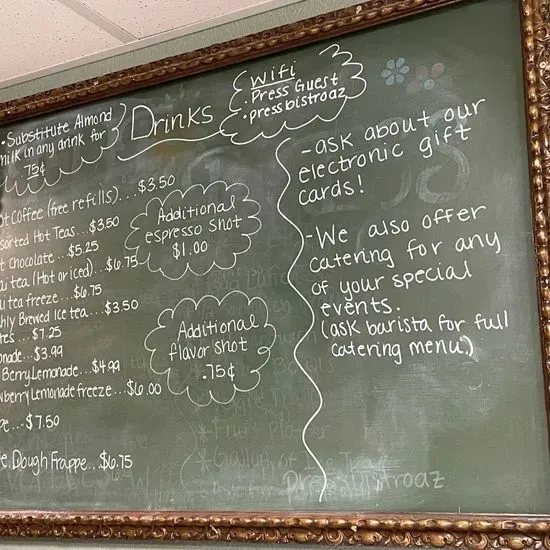 • Substitute Almond
milk in any drink for
.75¢
Drinks
Wifi
• Press Guest
• pressbistroaz
ot Coffee (free refills)...$3.50
sorted Hot Teas...$3.50
t chocolate...$5.25
ai tea (Hot or iced)...$6.75
ai tea freeze...$6.75
hly Brewed Ice tea....$3.50
tes...$7.25
onade...$3.99
Berry Lemonade...$4.99
wberry Lemonade freeze...$6.00
pe...$7.50
e Dough Frappe...$6.75
Additional
espresso shot
$1.00
Additional
flavor shot
.75¢
-ask about our
electronic gift
cards!
-We also offer
catering for any
of your special
events.
(ask barista for full
catering menu.)
pressbistroaz